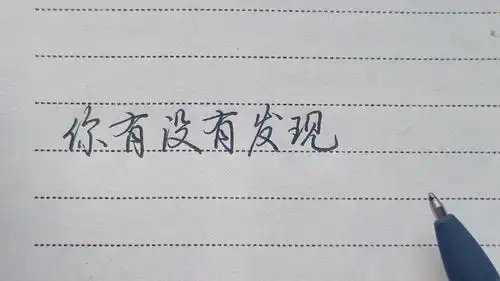 你有没有发现